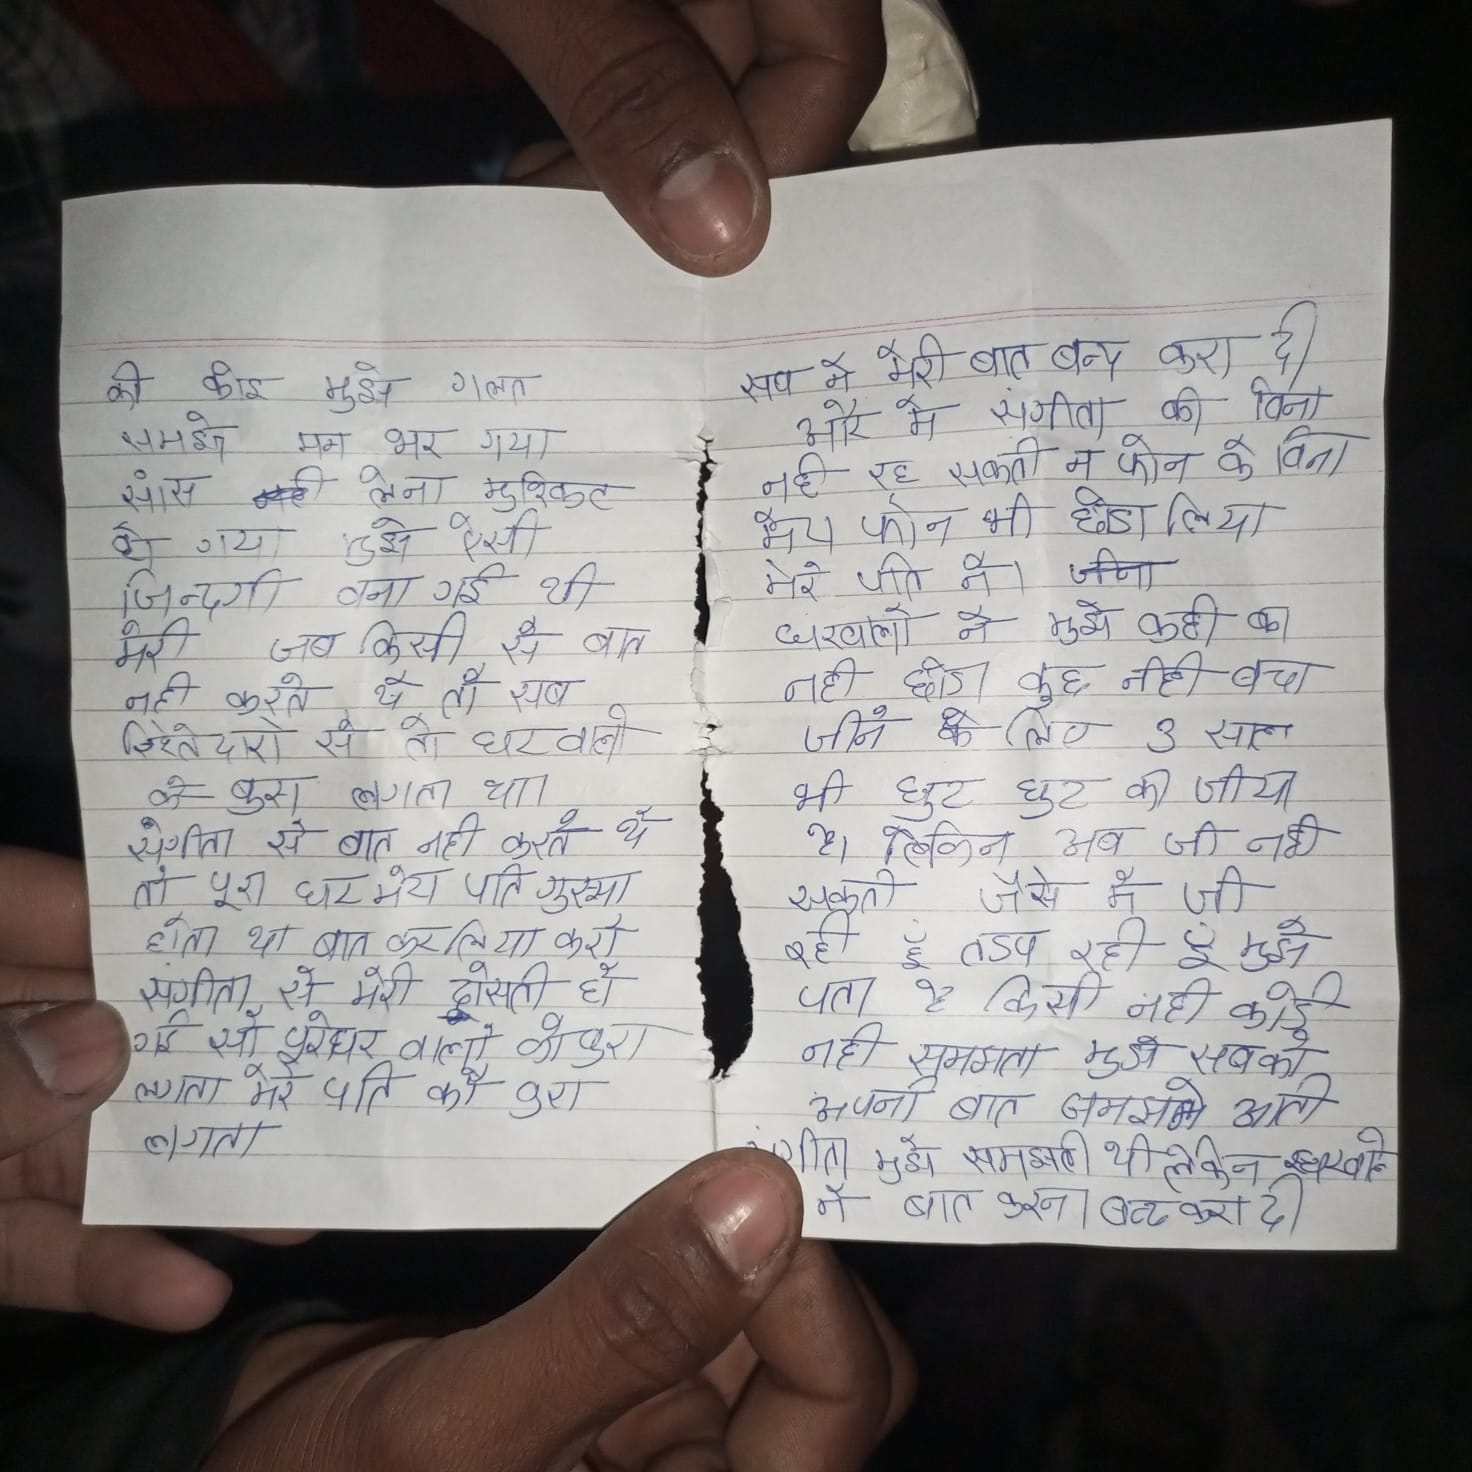 की कोइ मुझे गलत
समझे मन भर गया
सांस लेना मुश्किल
हो गया मुझे ऐसी
जिन्दगी बना गई थी
मेरी जब किसी से बात
नही करते थे तो सब
रिश्तेदारो से तो घरवालो
को बुरा लगता था।
संगीता से बात नही करते थे
तो पूरा घर मेरा पति गुस्सा
होता था बात कर लिया करो
संगीता से मेरी दोसती हो
गई सो पूरे घर वालो को बुरा
लगता मेरे पति को बुरा
लगता
सब मे मेरी बात बन्द करा दी
और मे संगीता की बिना
नही रह सकती न फोन के बिना
मेरा फोन भी छीडा लिया
मेरे पति ने। जीना
घरवालो ने मुझे कही का
नही छोडा कुछ नही बचा
जीने के लिए 3 साल
भी घुट घुट की जीया
है। लेकिन अब जी नही
सकती जैसे मै जी
रही हूं तडप रही हूं मुझे
पता है किसी नही कोई
नही सममता मुझे सबको
अपनी बात समझाने आती
संगीता मुझे समझती थी लेकिन घरवाले
ने बात करना बन्द करा दी